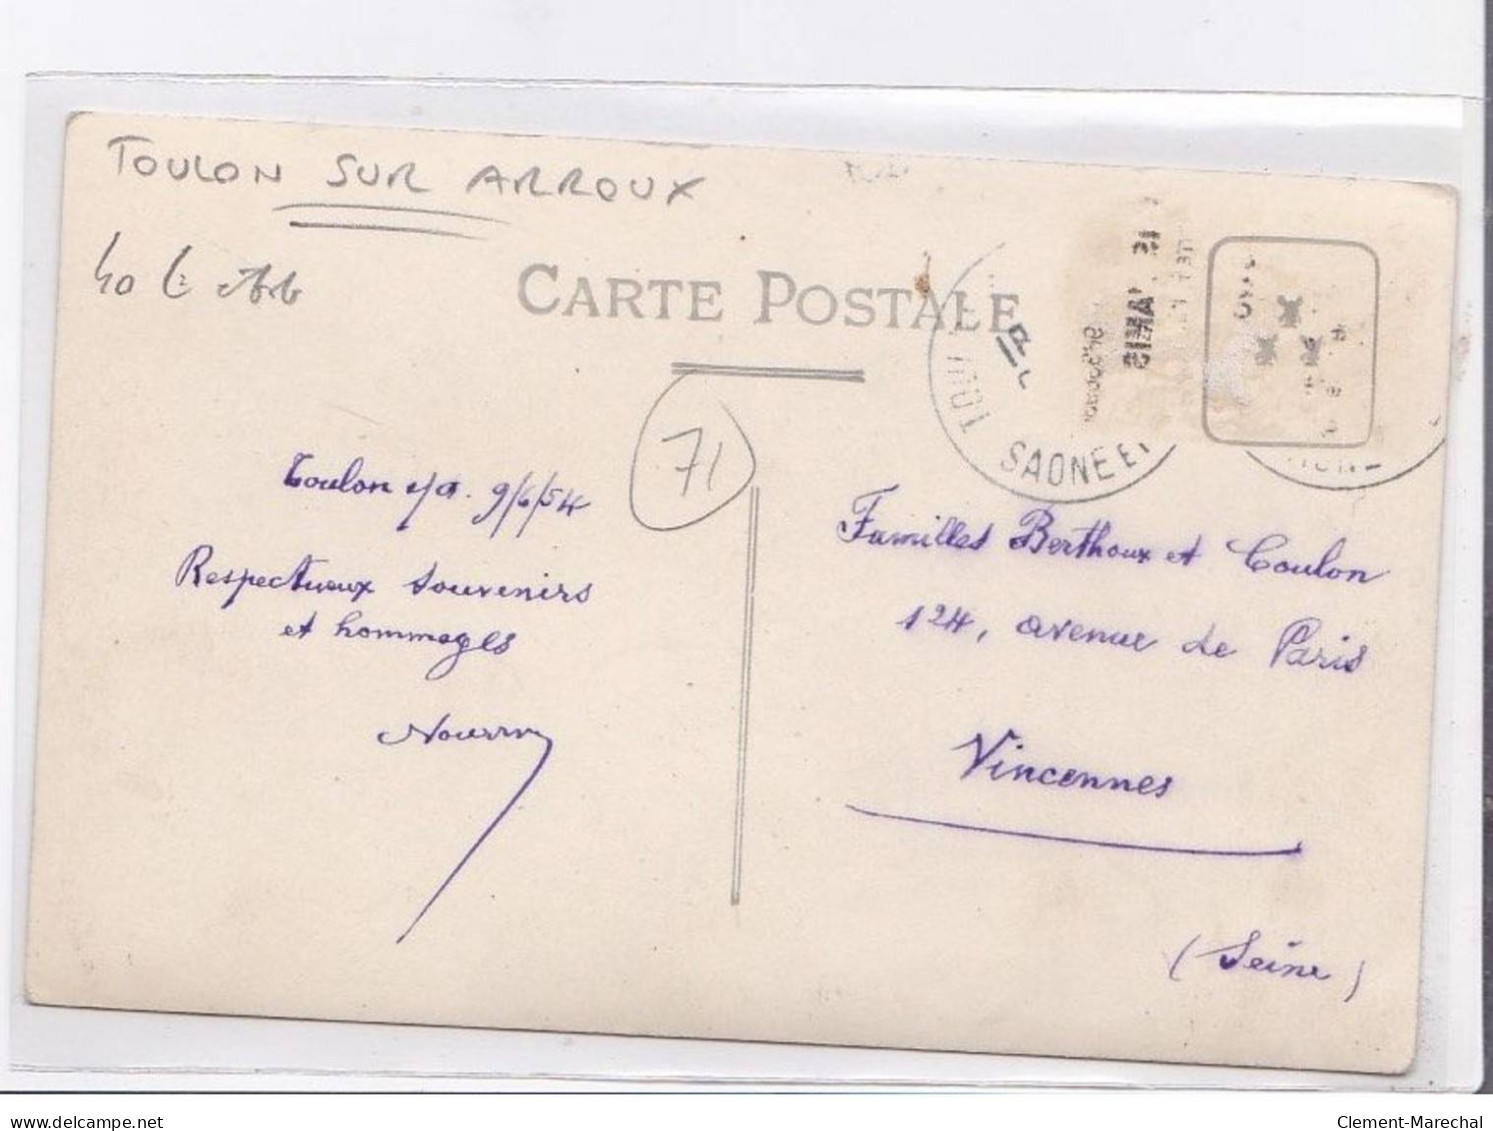 TOULON SUR ARROUX
CARTE POSTALE
TOUL
SAONE ET
71
Toulon s/a. 9/6/54
Respectueux souvenirs
et hommages
Familles Berthoux et Coulon
124, avenue de Paris
Vincennes
(Seine)
delcampe.net
Clement-Marechal